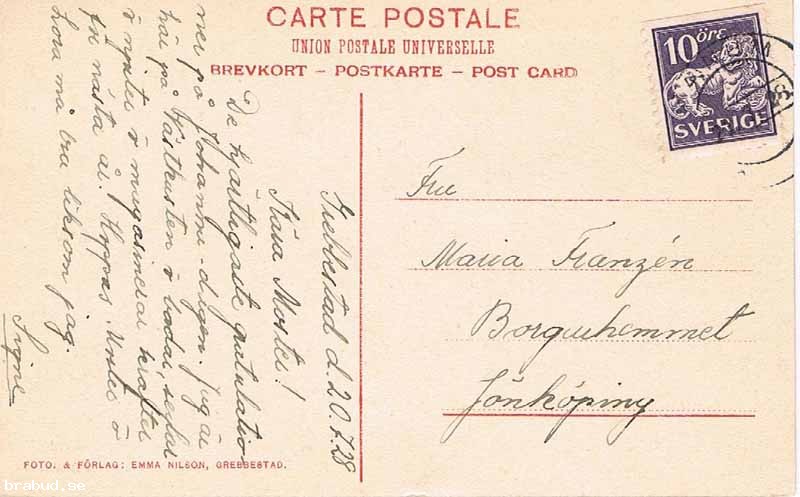 CARTE POSTALE
UNION POSTALE UNIVERSELLE
BREVKORT – POSTKARTE – POST CARD
10 ÖRE
SVERIGE
Grebbestad d. 20.7.28
Kära Moster!
De hjärtligaste gratulationer
på Johanni-dagen. Jag är
här på Västkusten o badar, sedan
i nya krafter
för nästa år. Hoppas Moster o
Lova må bra liksom jag.
Signe
Fru
Maria Franzén
Borgarhemmet
Jönköping
FOTO. & FÖRLAG: EMMA NILSON, GREBBESTAD.
brabud.se